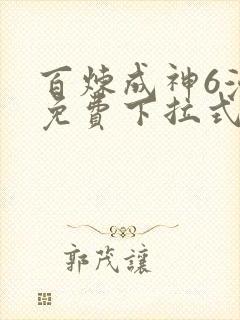 百炼成神6
免費下拉式
郭茂讓